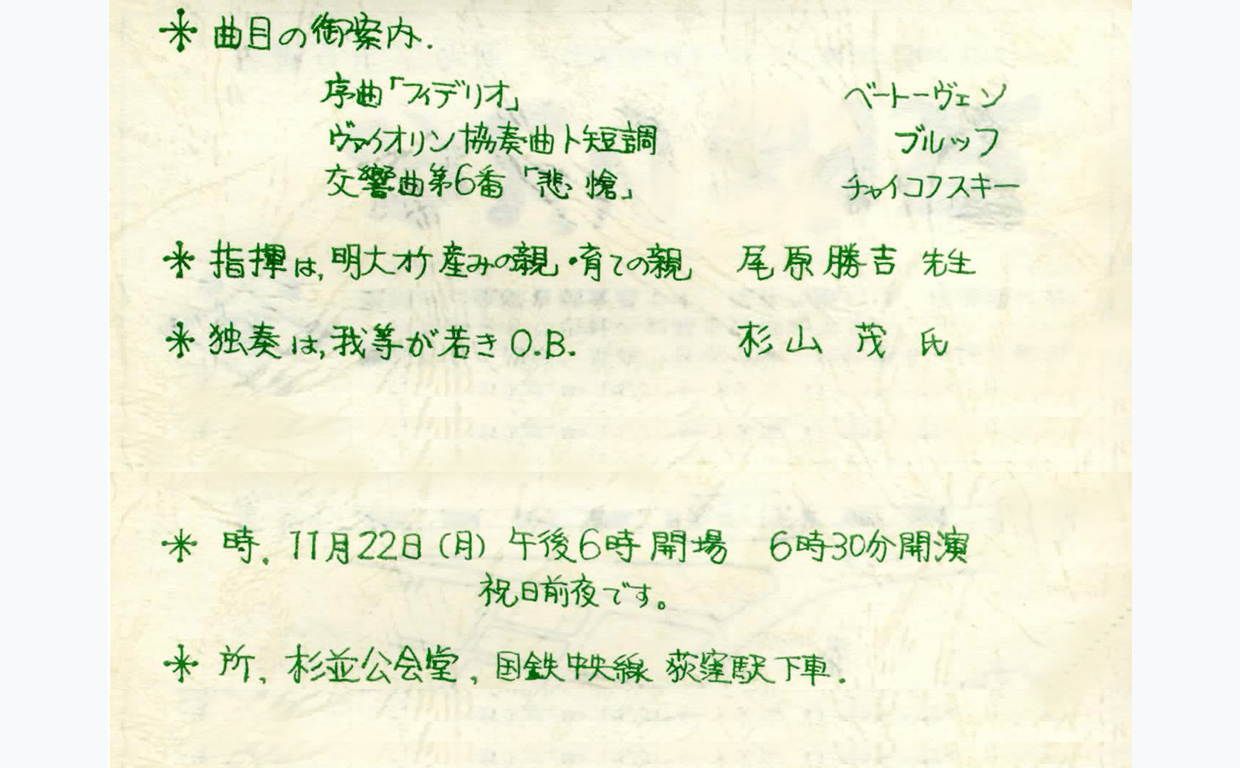 * 曲目の御案内.
序曲「フィデリオ」 ベートーヴェン
ヴァイオリン協奏曲ト短調 ブルッフ
交響曲第6番「悲愴」 チャイコフスキー
* 指揮は,明大オケ産みの親・育ての親 尾原勝吉 先生
* 独奏は,我等が若きO.B. 杉山 茂 氏
* 時. 11月22日(月) 午後6時開場 6時30分開演
祝日前夜です。
* 所. 杉並公会堂. 国鉄中央線 荻窪駅下車.